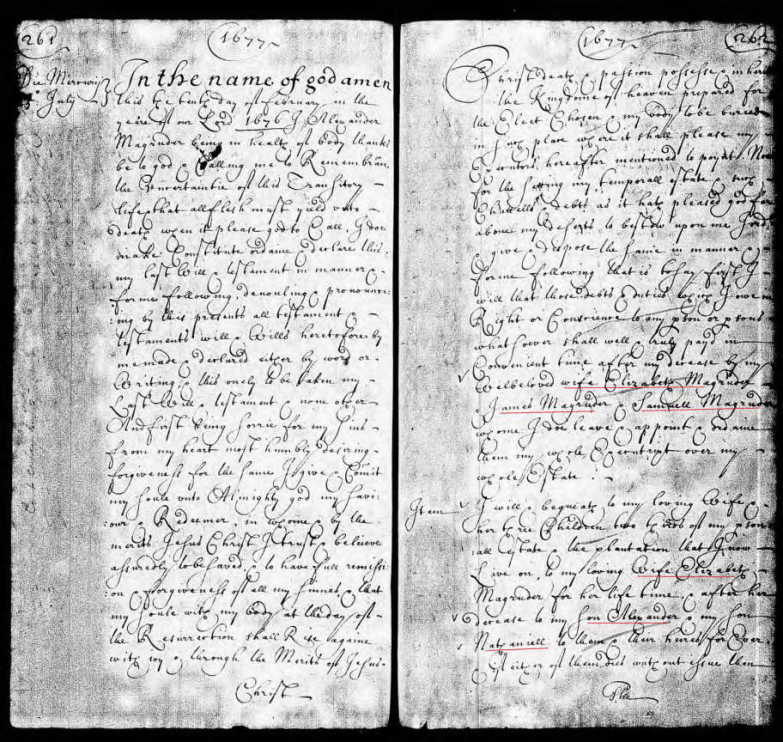 261
1677
Die Mercurii
July
In the name of god amen
this the tenth day of February in the
yeare of our Lord 1676 I Alexander
Magruder being in health of body thanks
be to god & Calling me to Remembrance
the Uncertaintie of this Transitory
life & that all flesh must yield unto
death when it please god to Call, I doe
make Constitute ordaine & declare this
my last Will & testament in manner &
forme following, & pronounc
ing by this presents all testament &
testaments will & Wills heretofore by
me made & declared either by word or
Writing & this onely to be taken my
Last Will & testament & none other
And first being sorrie for my sins
from my heart most humbly desiring
forgiveness for the same I give & Comit
my soule unto Almighty god my Savi
our & Redeemer, in whome & by the
merits Jesus Christ I trust & believe
assuredly to be saved, & to have full remissi
on & forgiveness of all my sinnes, & that
my soule with my body at the day of
the Resurrection shall Rise againe
with joy & through the Merits of Jesus
Christ
1677
262
Christ death & passion possesse & inherit
the Kingdome of heaven prepared for
the Elect Chosen & my body to be buried
in such place where it shall please my
Executors hereafter mentioned to Now
for the my temporall estate &
Chattells & debts as it hath pleased god far
above my deserts to bestow upon me I doe
give & dispose the same in manner &
forme following that is to say first I
will that those debts & duties I owe in
Right or Conscience to any pson or psons
whatsoever shall well & truly payd in
Convenient time after my decease by my
Welbeloved wife Elizabeth Magruder
James Magruder & Samuell Magruder
whome I doe leave & appoint & ordaine
them my whole over my
whole Estate
Item I will & bequeath to my loving Wife &
her three Children two thirds of my pson
all Estate & the plantation that I now
live on, to my loving Wife Elizabeth
Magruder for her life time, & after her
decease to my son Alexander & my son
Nathaniell to them & their heires for Ever
& if either of them dies without issue then
The